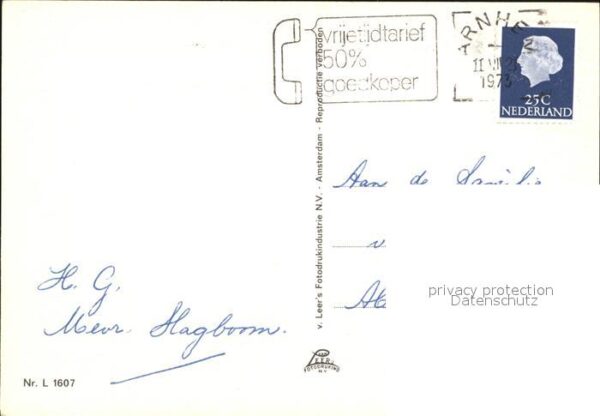 vrijetijdtarief
50%
goedkoper
ARNHEM
1973
25C
NEDERLAND
v. Leer's Fotodrukindustrie N.V. - Amsterdam - Reproductie verboden
Aan de Familie
v
H. G.
Mevr. Hagboom.
privacy protection
Datenschutz
LEER'S
FOTODRUKIND
N.V.
Nr. L 1607